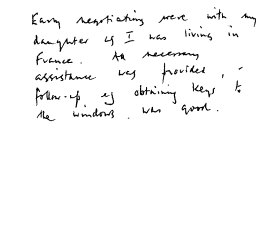 Early negotiating were with my
daughter as I was living in
France. All necessary
assistance was provided,
follow-up eg obtaining keys to
the windows, was good.